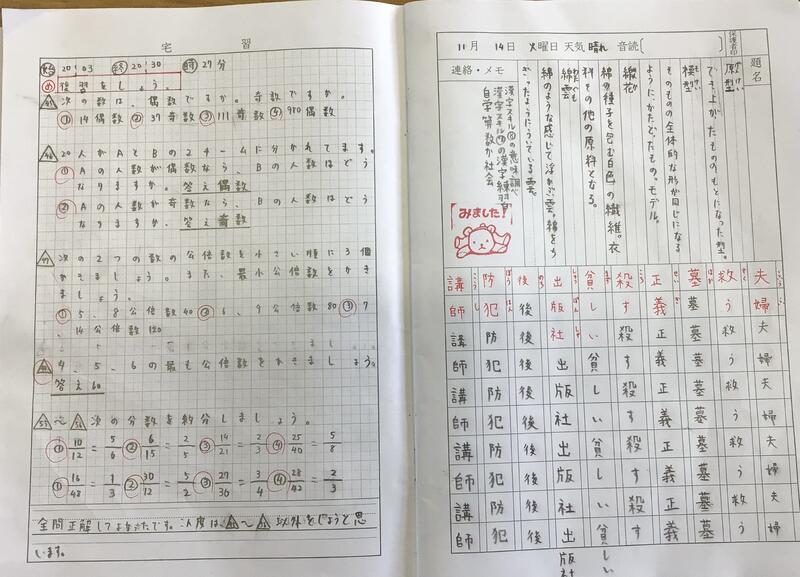 宅習
始 20:03 終 20:30 時 27分
め 復習をしょう。
次の数は、偶数ですか。奇数ですか。
① 14偶数 ② 37奇数 ③ 111奇数 ④ 970偶数
20人がAとBの2チームに分かれてます。
① Aの人数が偶数なら、Bの人数はどう
なりますか。答え偶数
② Aの人数が奇数なら、Bの人数はどう
なりますか。答え奇数
次の2つの数の公倍数を小さい順に3個
かきましょう。また、最小公倍数をかき
ましょう。
① 5、8公倍数40 ② 6、9公倍数80 ③ 7
、14公倍数120
4、5、6の最も公倍数をかきましょう。
答え60
次の分数を約分しましょう。
① 10/12 = 5/6 ② 6/15 = 2/5 ③ 14/21 = 2/3 ④ 25/40 = 5/8
① 16/48 = 1/3 ② 30/12 = 5/2 ③ 27/36 = 3/4 ④ 28/42 = 2/3
全問正解してよかたです。
以外をしようと思
います。
11月 14日 火曜日 天気 晴れ 音読〔 〕
保護者印
題名
連絡・メモ
原型
でき上がたもののもとになった型。
模型
そのものの全体的な形が同じになる
ように、かたどたもの。モデル。
綿花
綿の種子を包む白色の繊維。衣
料その他の原料となる。
綿雲
綿のような感じで浮かぶ雲。綿をち
ぎったようにういている雲。
漢字スキル⑤の意味調べ
漢字スキル⑭の漢字練習
自学 算数か社会
みました!
夫婦夫婦夫婦夫婦夫婦
救う救う救う救う救う
墓墓墓墓墓墓墓墓墓墓
正義正義正義正義正義
殺す殺す殺す殺す殺す
貧しい貧しい貧しい貧しい
出版社出版社出版社出版社
後後後後後後後後後後
防犯防犯防犯防犯防犯
講師講師講師講師講師